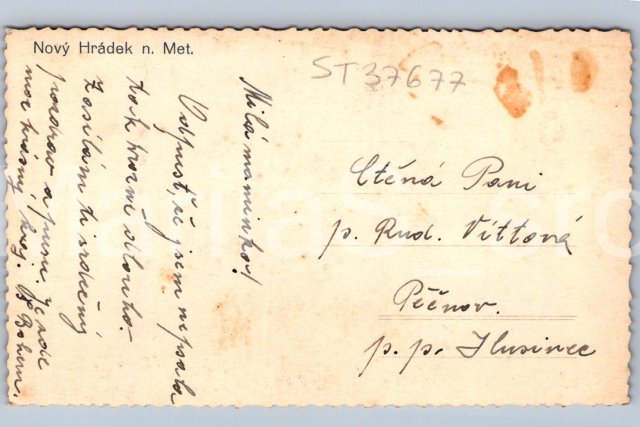 Nový Hrádek n. Met.
ST37677
Milá maminko!
Odpusť, že jsem nepsala
tak hrozně dlouho.
Zasílám ti srdečný
pozdrav a pusu. Je zde
moc krásný kraj.
Ctěná Paní
p. Rud. Víttová
Pěčnov.
p. p. Husinec